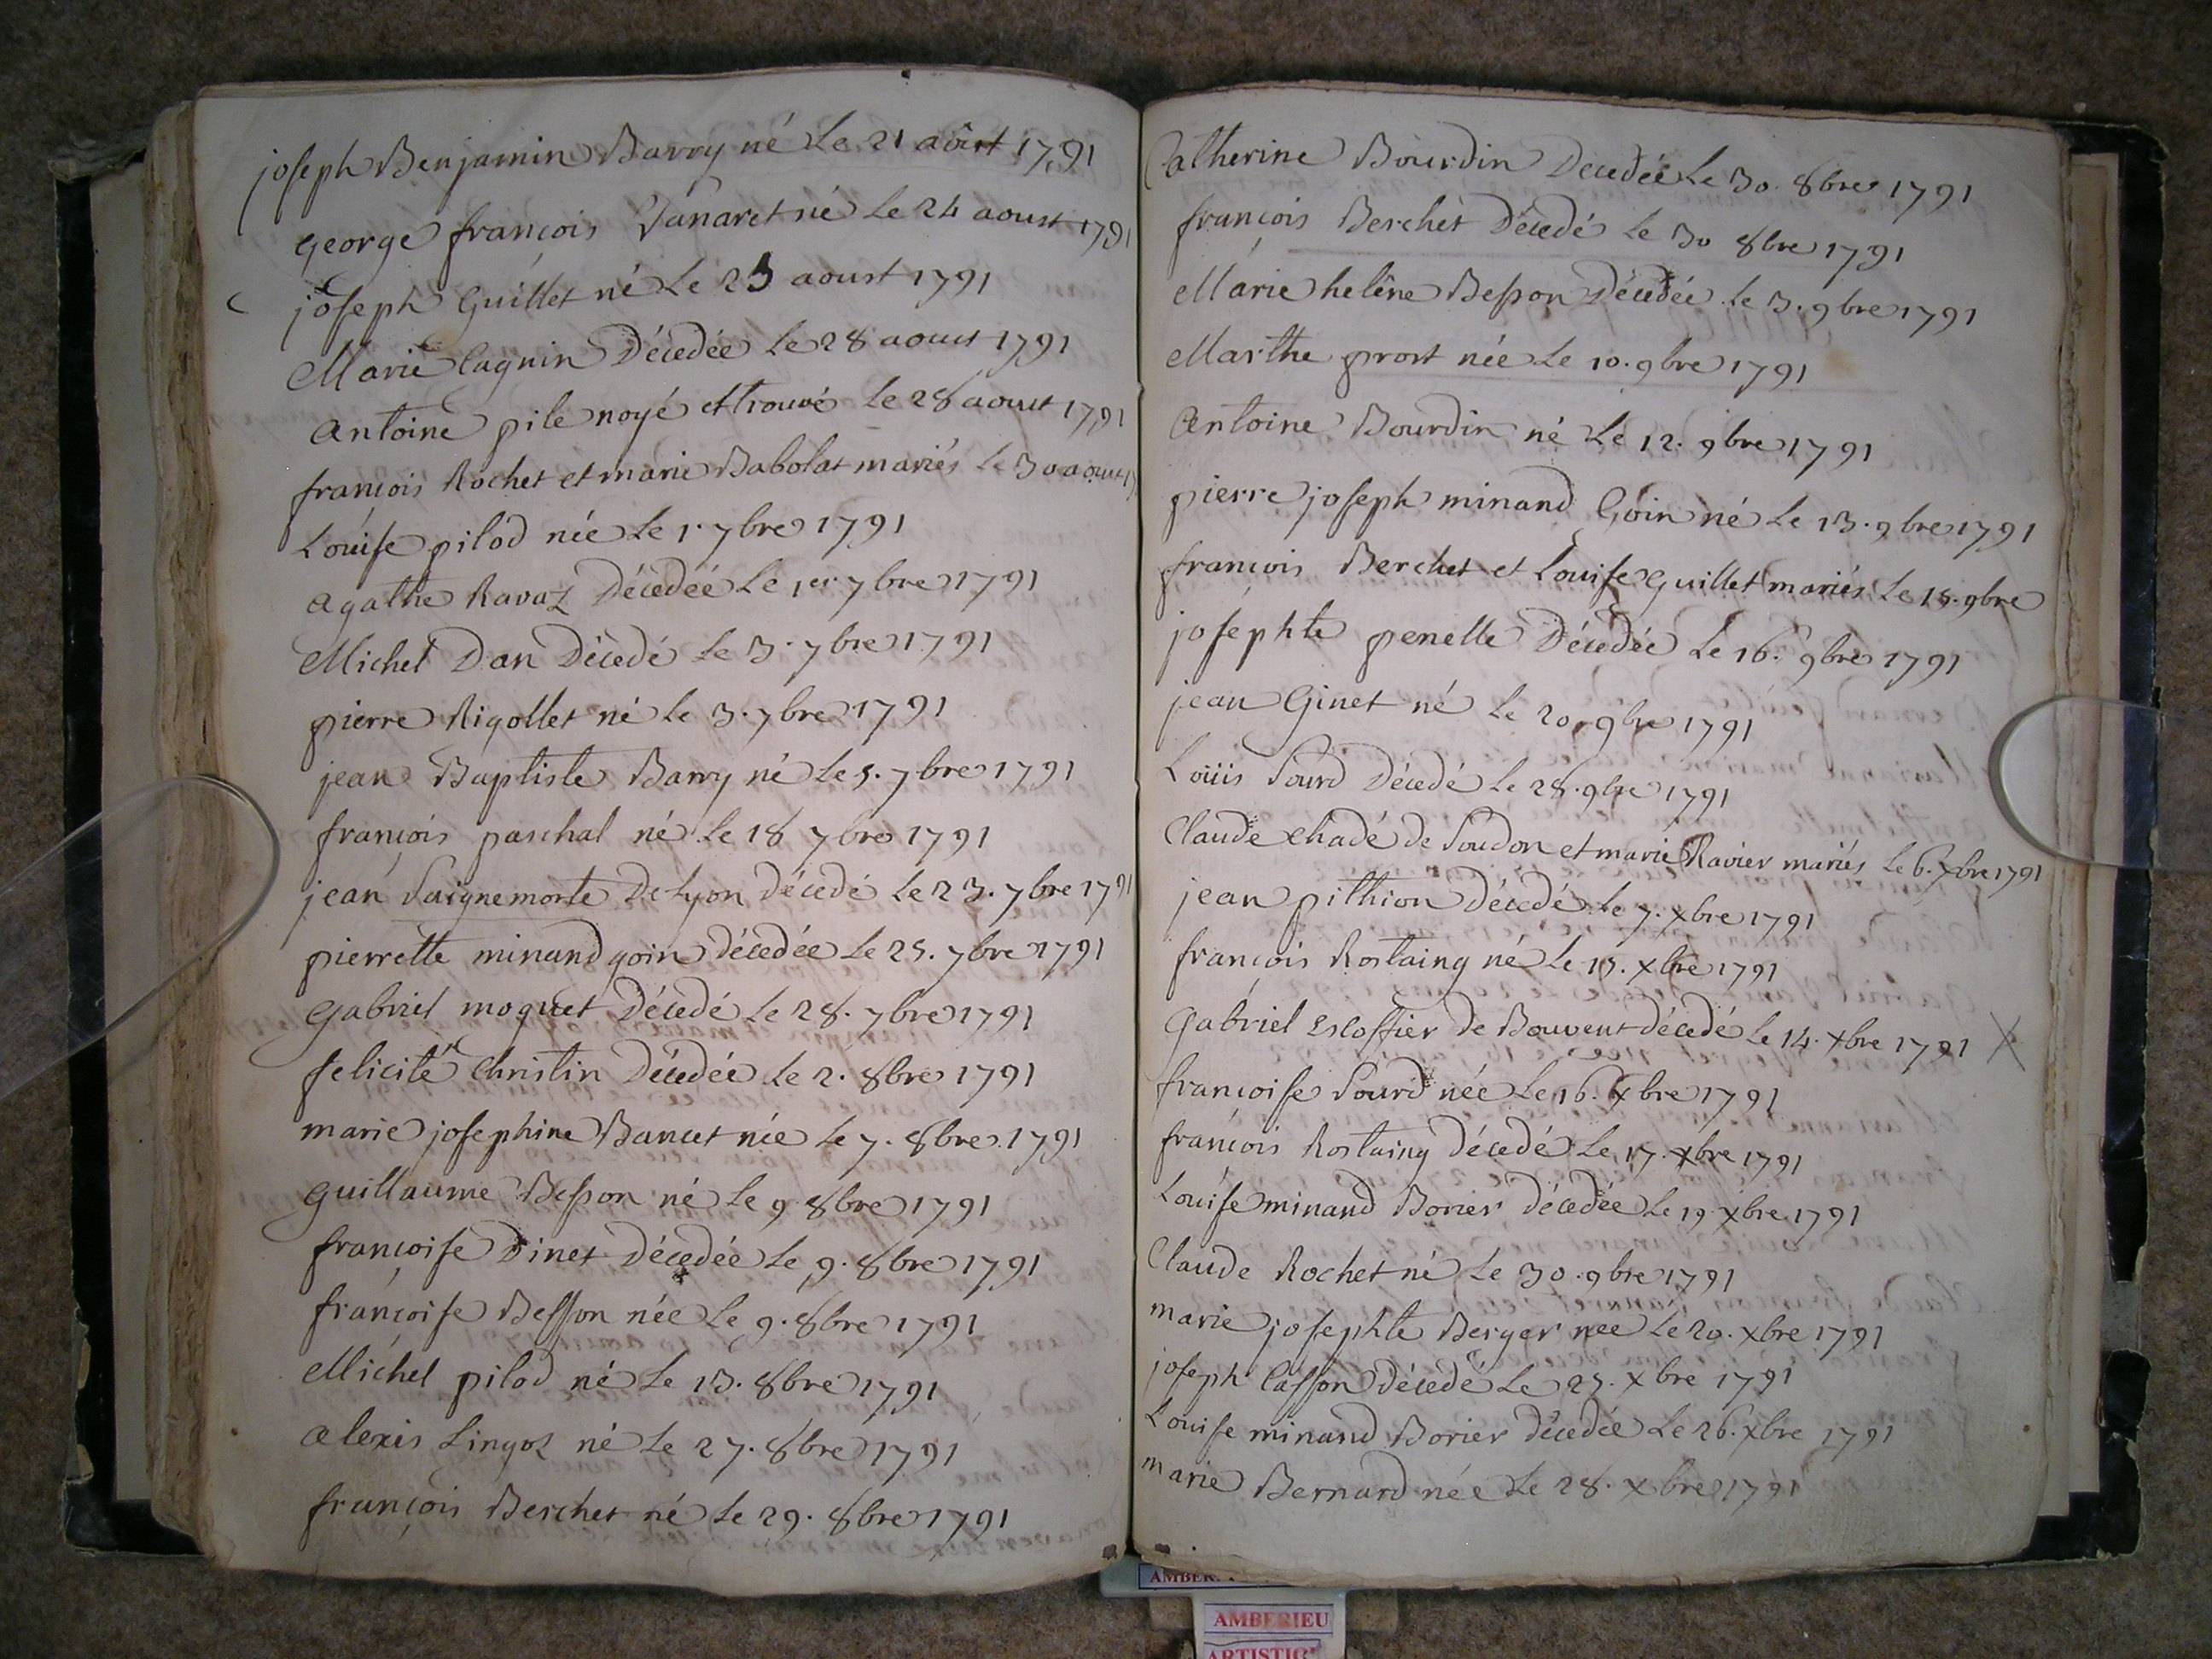 joseph Benjamin Barry né Le 21 aôust 1791
george françois Vanaret né Le 24 aoust 1791
joseph Guillet né Le 25 aoust 1791
Marie Cagnin Décedée Le 28 aoust 1791
antoine pile noyé et trouvé Le 28 aoust 1791
françois Rochet et marie Babolat mariés Le 30 aoust
Louise pilod née Le 1. 7bre 1791
agathe Ravaz Décedée Le 1er 7bre 1791
Michel Dan Décedé Le 3. 7bre 1791
pierre Rigollet né Le 3. 7bre 1791
jean Baptiste Barry né Le 5. 7bre 1791
françois paschal né Le 18 7bre 1791
jean Saignemorte De Lyon Décedé Le 23. 7bre 1791
pierrette minand goin Décedée Le 25. 7bre 1791
Gabriel moquet Décedé Le 28. 7bre 1791
felicité Christin Décedée Le 2. 8bre 1791
marie josephine Bancet née Le 7. 8bre 1791
Guillaume Besson né Le 9 8bre 1791
françoise Dinet Décedée Le 9. 8bre 1791
françoise Besson née Le 9. 8bre 1791
Michel pilod né Le 13. 8bre 1791
alexis Lingot né Le 27. 8bre 1791
françois Berchet né Le 29. 8bre 1791
Catherine Bourdin Decedée Le 30. 8bre 1791
françois Berchet Décedé Le 30 8bre 1791
Marie helêne Besson Décedée Le 3. 9bre 1791
Marthe prost née Le 10. 9bre 1791
Antoine Bourdin né Le 12. 9bre 1791
pierre joseph minand Goin né Le 13. 9bre 1791
françois Berchet et Louise Guillet mariés Le 15. 9bre
josephte penelle Décedée Le 16. 9bre 1791
jean Ginet né Le 20, 9bre 1791
Loüis Sourd Décedé Le 28. 9bre 1791
Claude chadé de Soudon et marie Ravier mariés Le 6. xbre 1791
jean pithion Décedé Le 7. xbre 1791
françois Rostaing né Le 15. xbre 1791
Gabriel Escoffier de Bouvent décedé Le 14. xbre 1791
françoise Sourd née Le 16. xbre 1791
françois Rostaing décedé Le 17. xbre 1791
Louise minand Borier décedée Le 19 xbre 1791
Claude Rochet né Le 30. 9bre 1791
marie josephte Berger née Le 20. xbre 1791
joseph Casson Décedé Le 25. xbre 1791
Louise minand Borier décedée Le 26. xbre 1791
marie Bernard née Le 28. xbre 1791
AMBERIEU